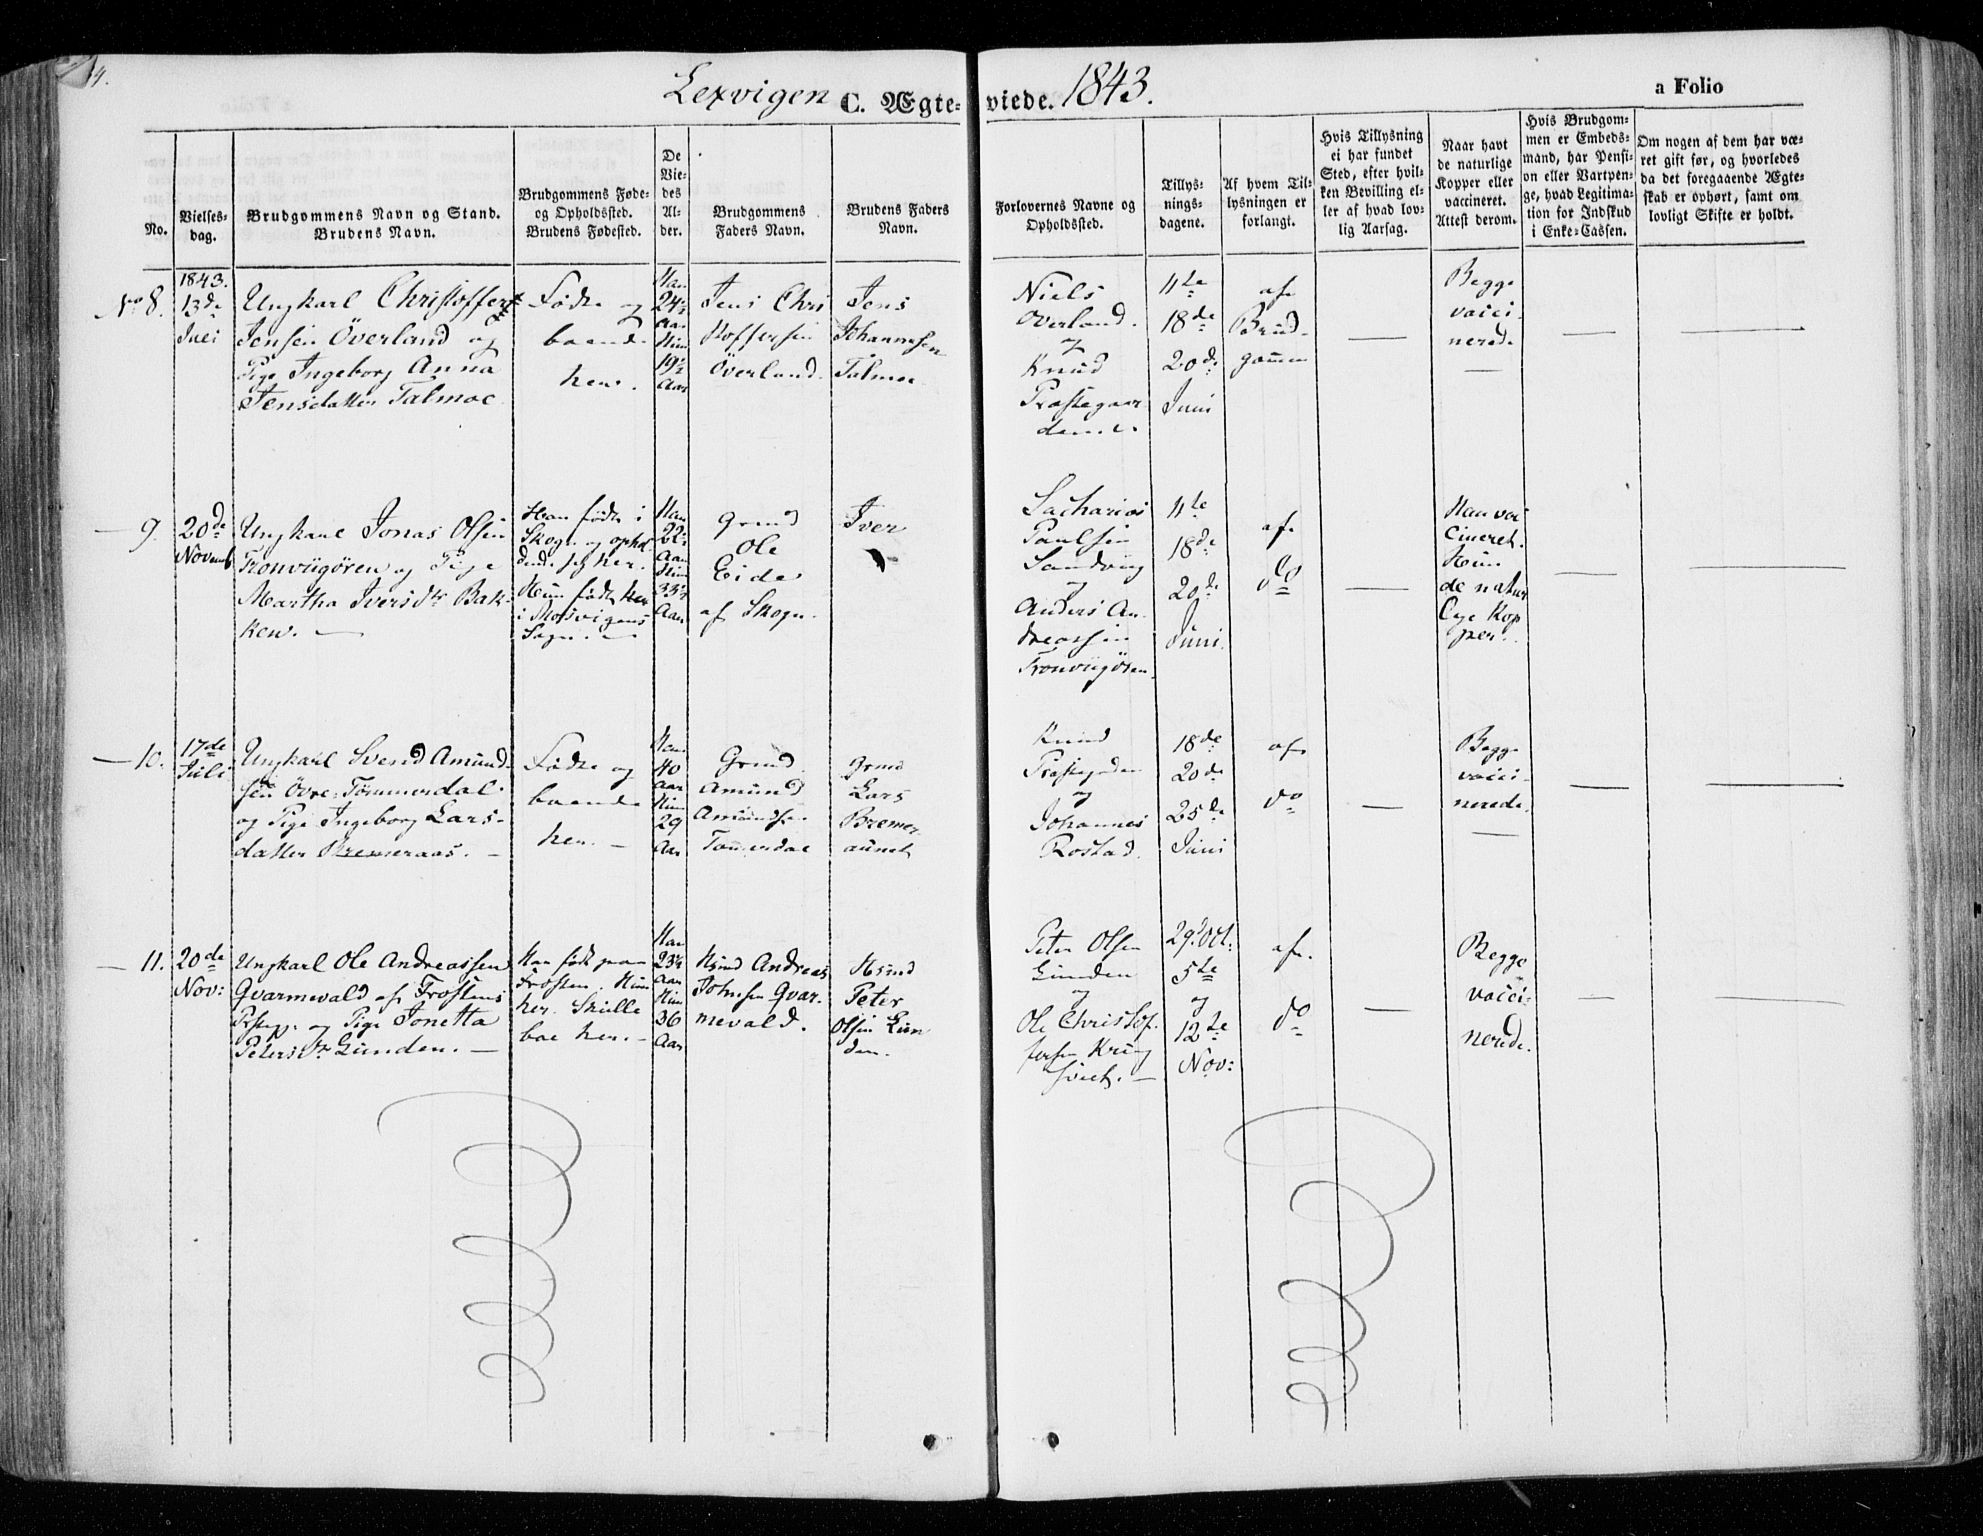 Lexvigen C. Ægte-viede. 1843.
a Folio
No.
Vielses-
dag.
Brudgommens Navn og Stand.
Brudens Navn.
Brudgommens Føde-
og Opholdssted.
Brudens Fødested.
De
Vie-
des
Al-
der.
Brudgommens
Faders Navn.
Brudens Faders
Navn.
Forlovernes Navne og
Opholdssted.
Tillys-
nings-
dagene.
Af hvem Til-
lysningen er
forlangt.
Hvis Tillysning
ei har fundet
Sted, efter hvil-
ken Bevilling el-
ler af hvad lov-
lig Aarsag.
Naar havt
de naturlige
Kopper eller
vaccineret.
Attest derom.
Hvis Brudgom-
men er Embeds-
mand, har Pensi-
on eller Vartpen-
ge, hvad Legitima-
tion for Indskud
i Enke-Cassen.
Om nogen af dem har væ-
ret gift før, og hvorledes
da det foregaaende Ægte-
skab er ophørt, samt om
lovligt Skifte er holdt.
No 8.
1843.
13de
Juli
Ungkarl Christoffer
Jensen Överland og
Pige Ingeborg Anna
Jensdatter Talmoe
Födte og
boende
her.
Han
24½
Aar
Hun
19½
Aar
Jens Chri
stoffersen
Överland.
Jens
Johannesen
Talmoe
Niels
Overland.
og
Knud
Præstegaar
den
11te
18de
20de
Juni
af
Brud-
gommen
Begge
vacci-
nerede
— 9.
20de
Novemb
Ungkarl Jonas Olsen
Tronviigören og Pige
Martha Iversdtr Bak-
ken. —
Han födt i
Skogn og ophol
dende sig her.
Hun födt her
i Mosvigens
Sogn. —
Han
22½
Aar
Hun
33½
Aar
Grmd
Ole
Eide
af Skogn.
Iver
Sacharias
Paulsen
Sandviig
og
Anders An
dreassen
Tronviigören.
11te
18de
20de
Juni.
af
do
—
Han vac
cineret.
Hun
de natur
lige Kop
per.
— 10.
17de
Juli
Ungkarl Svend Amund-
sen Övre-Tömmerdal
og Pige Ingeborg Lars-
datter Bremeraas. —
Födte og
boende
her. —
Han
40
Aar
Hun
29
Aar
Grmd.
Amund
Amundsen
Tömmerdal
Grmd
Lars
Bremer
aunet
Knud
Præstegrden
og
Johannes
Rostad.
18de
20de
25de
Juni
af
do
—
Begge
vacci-
nerede.
— 11.
20de
Nov:
Ungkarl Ole Andreassen
Qvarmevald af Frostens
Præstegj. og Pige Jonetta
Petersdtr Linden. —
Han födt paa
Frosten. Hun
her. Skulle
boe her. —
Han
23½
Aar
Hun
36
Aar
Hsmd Andreas
Johnsen Qvar-
mevald.
Hsmd
Peter
Olsen Lin
den.
Peter Olsen
Linden
og
Ole Christof-
fersen Kring
sviet. —
29d Oct:
5te
og
12te
Nov:
af
do
—
Begge
vacci-
nerede.